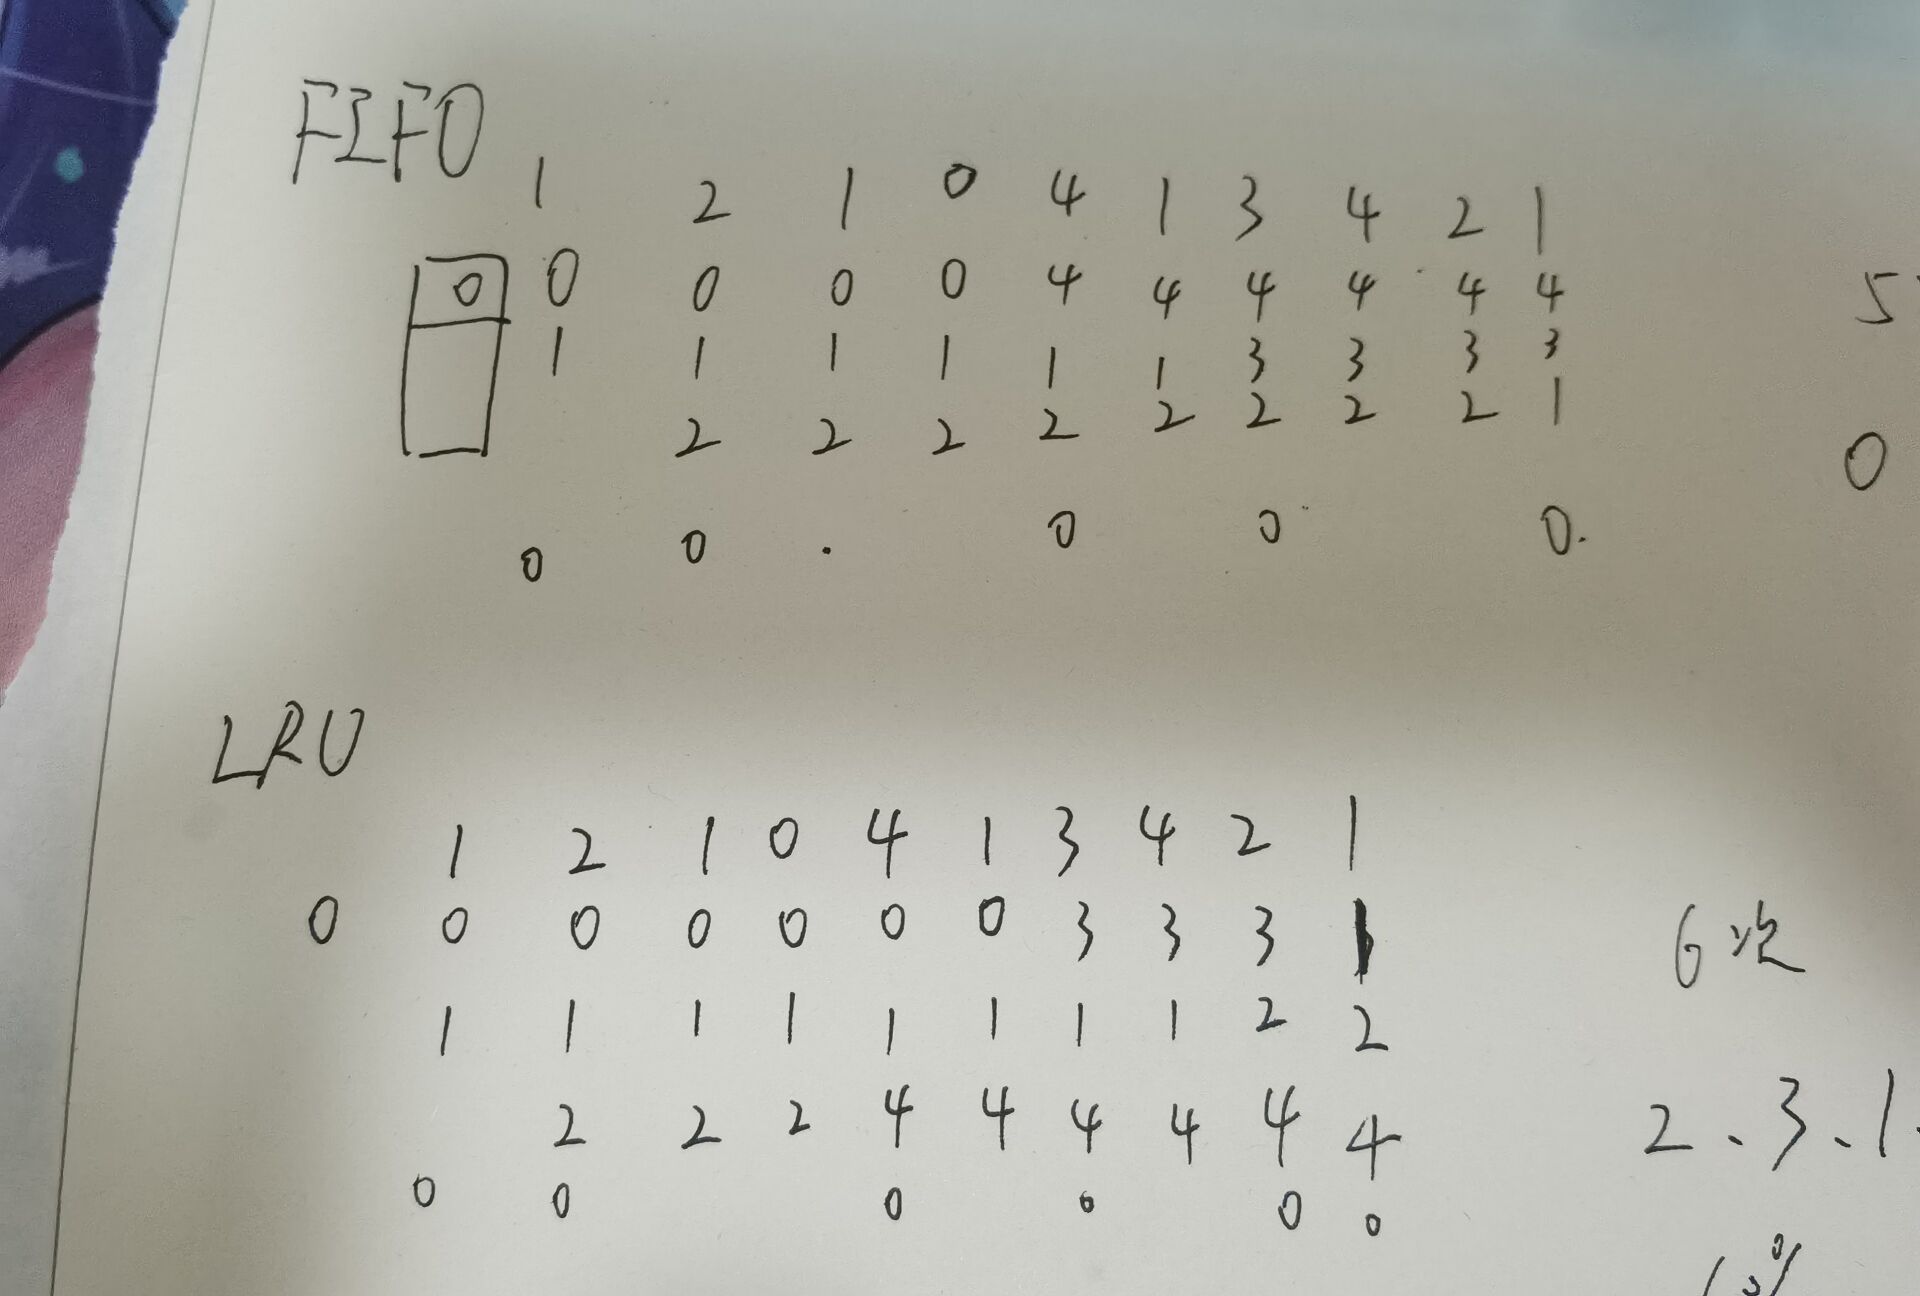 FIFO
1 2 1 0 4 1 3 4 2 1
0 0 0 0 0 4 4 4 4 4 4 5
1 1 1 1 1 1 3 3 3 3
2 2 2 2 2 2 2 2 1 0
0 0 . 0 0 0.
LRU
1 2 1 0 4 1 3 4 2 1
0 0 0 0 0 0 0 3 3 3 1 6次
1 1 1 1 1 1 1 1 2 2
2 2 2 4 4 4 4 4 4 2、3、1
0 0 0 0 0 0